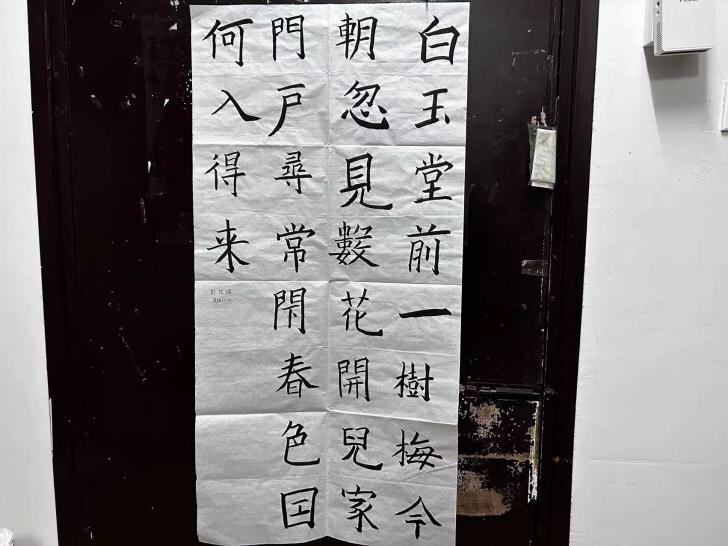 白玉堂前一樹梅今
朝忽見數花開兒家
門戸尋常閇春色囙
何入得来